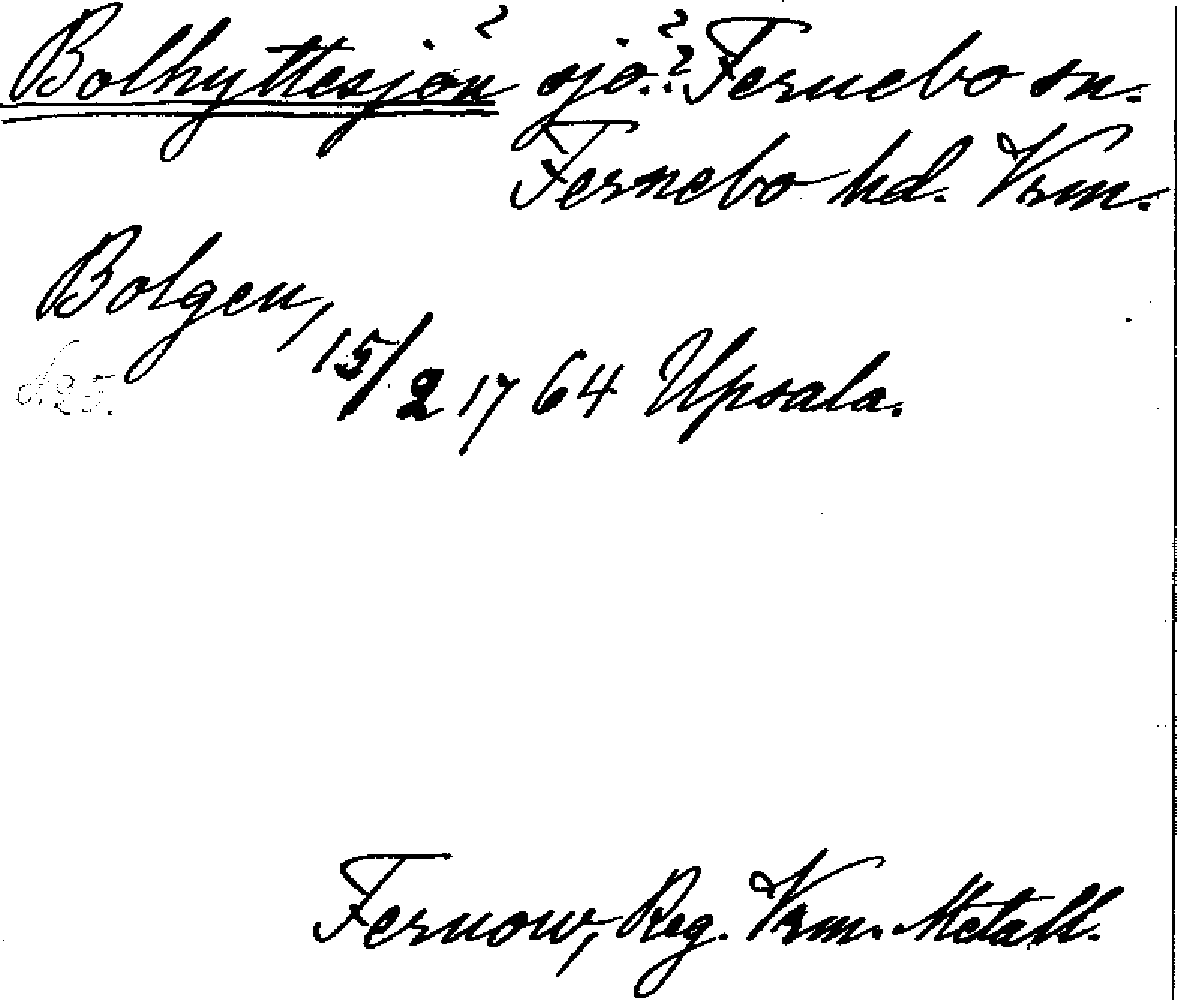 Bolhyttesjön sjö. Fernebo sn.
Fernebo hd. Vrm.
Bolgen,
15/2 1764 Upsala.
Fernow, Reg. Vrm. Metall.